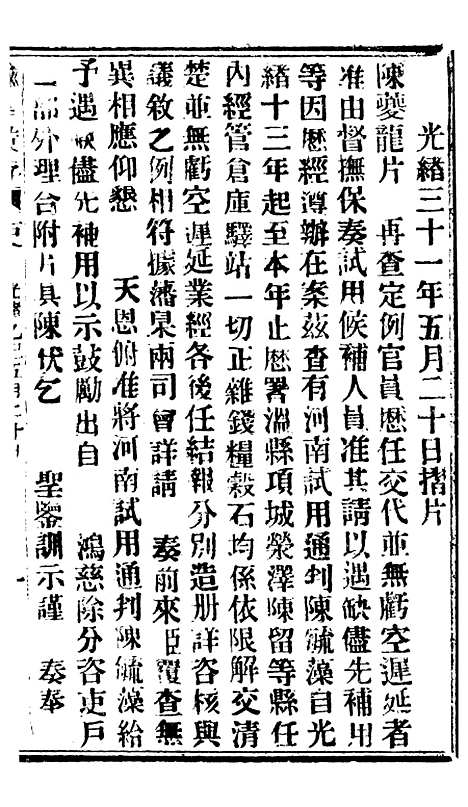 光緒三十一年五月二十日摺片
陳夔龍片　再查定例官員歷任交代並無虧空遲延者
准由督撫保奏試用候補人員准其請以遇缺儘先補用
等因歷經遵辦在案茲查有河南試用通判陳毓藻自光
緒十三年起至本年止歷署溫縣項城滎澤陳留等縣任
內經管倉庫驛站一切正雜錢糧穀石均係依限解交清
楚並無虧空遲延業經各後任結報分別造册詳咨核與
議敘之例相符據藩臬兩司會詳請　奏前來臣覆查無
異相應仰懇　天恩俯准將河南試用通判陳毓藻給
予遇缺儘先補用以示鼓勵出自　鴻慈除分咨吏戶
二部外理合附片具陳伏乞　聖鑒訓示謹　奏奉